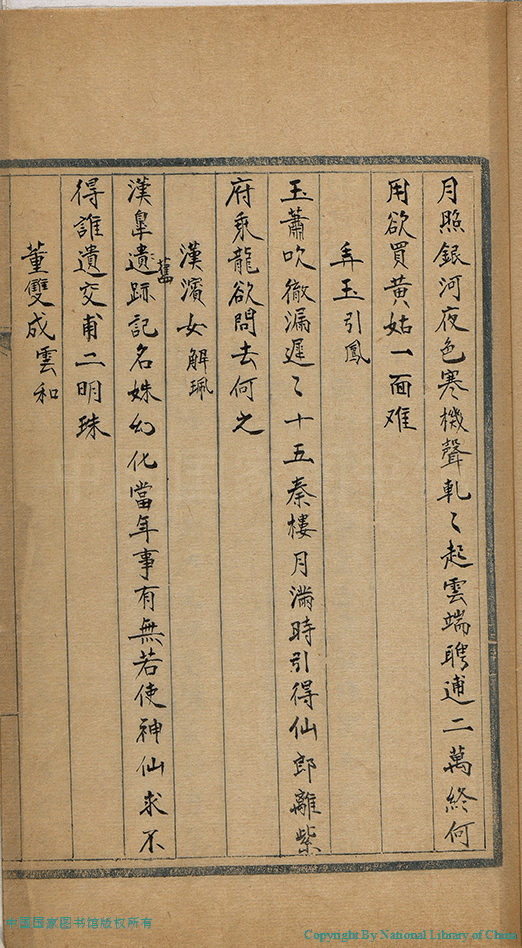 月照銀河夜色寒機聲軋〻起雲端聘逋二萬終何
用欲買黃姑一面难
弄玉引鳳
玉蕭吹徹漏遲〻十五秦樓月滿時引得仙郎離紫
府乘龍欲問去何之
漢濱女解珮
漢臯遺跡記名姝幻化當年事有無若使神仙求不
舊
得誰遺交甫二明珠
董雙成雲和
中国国家图书馆版权所有
Copyright By National Library of China